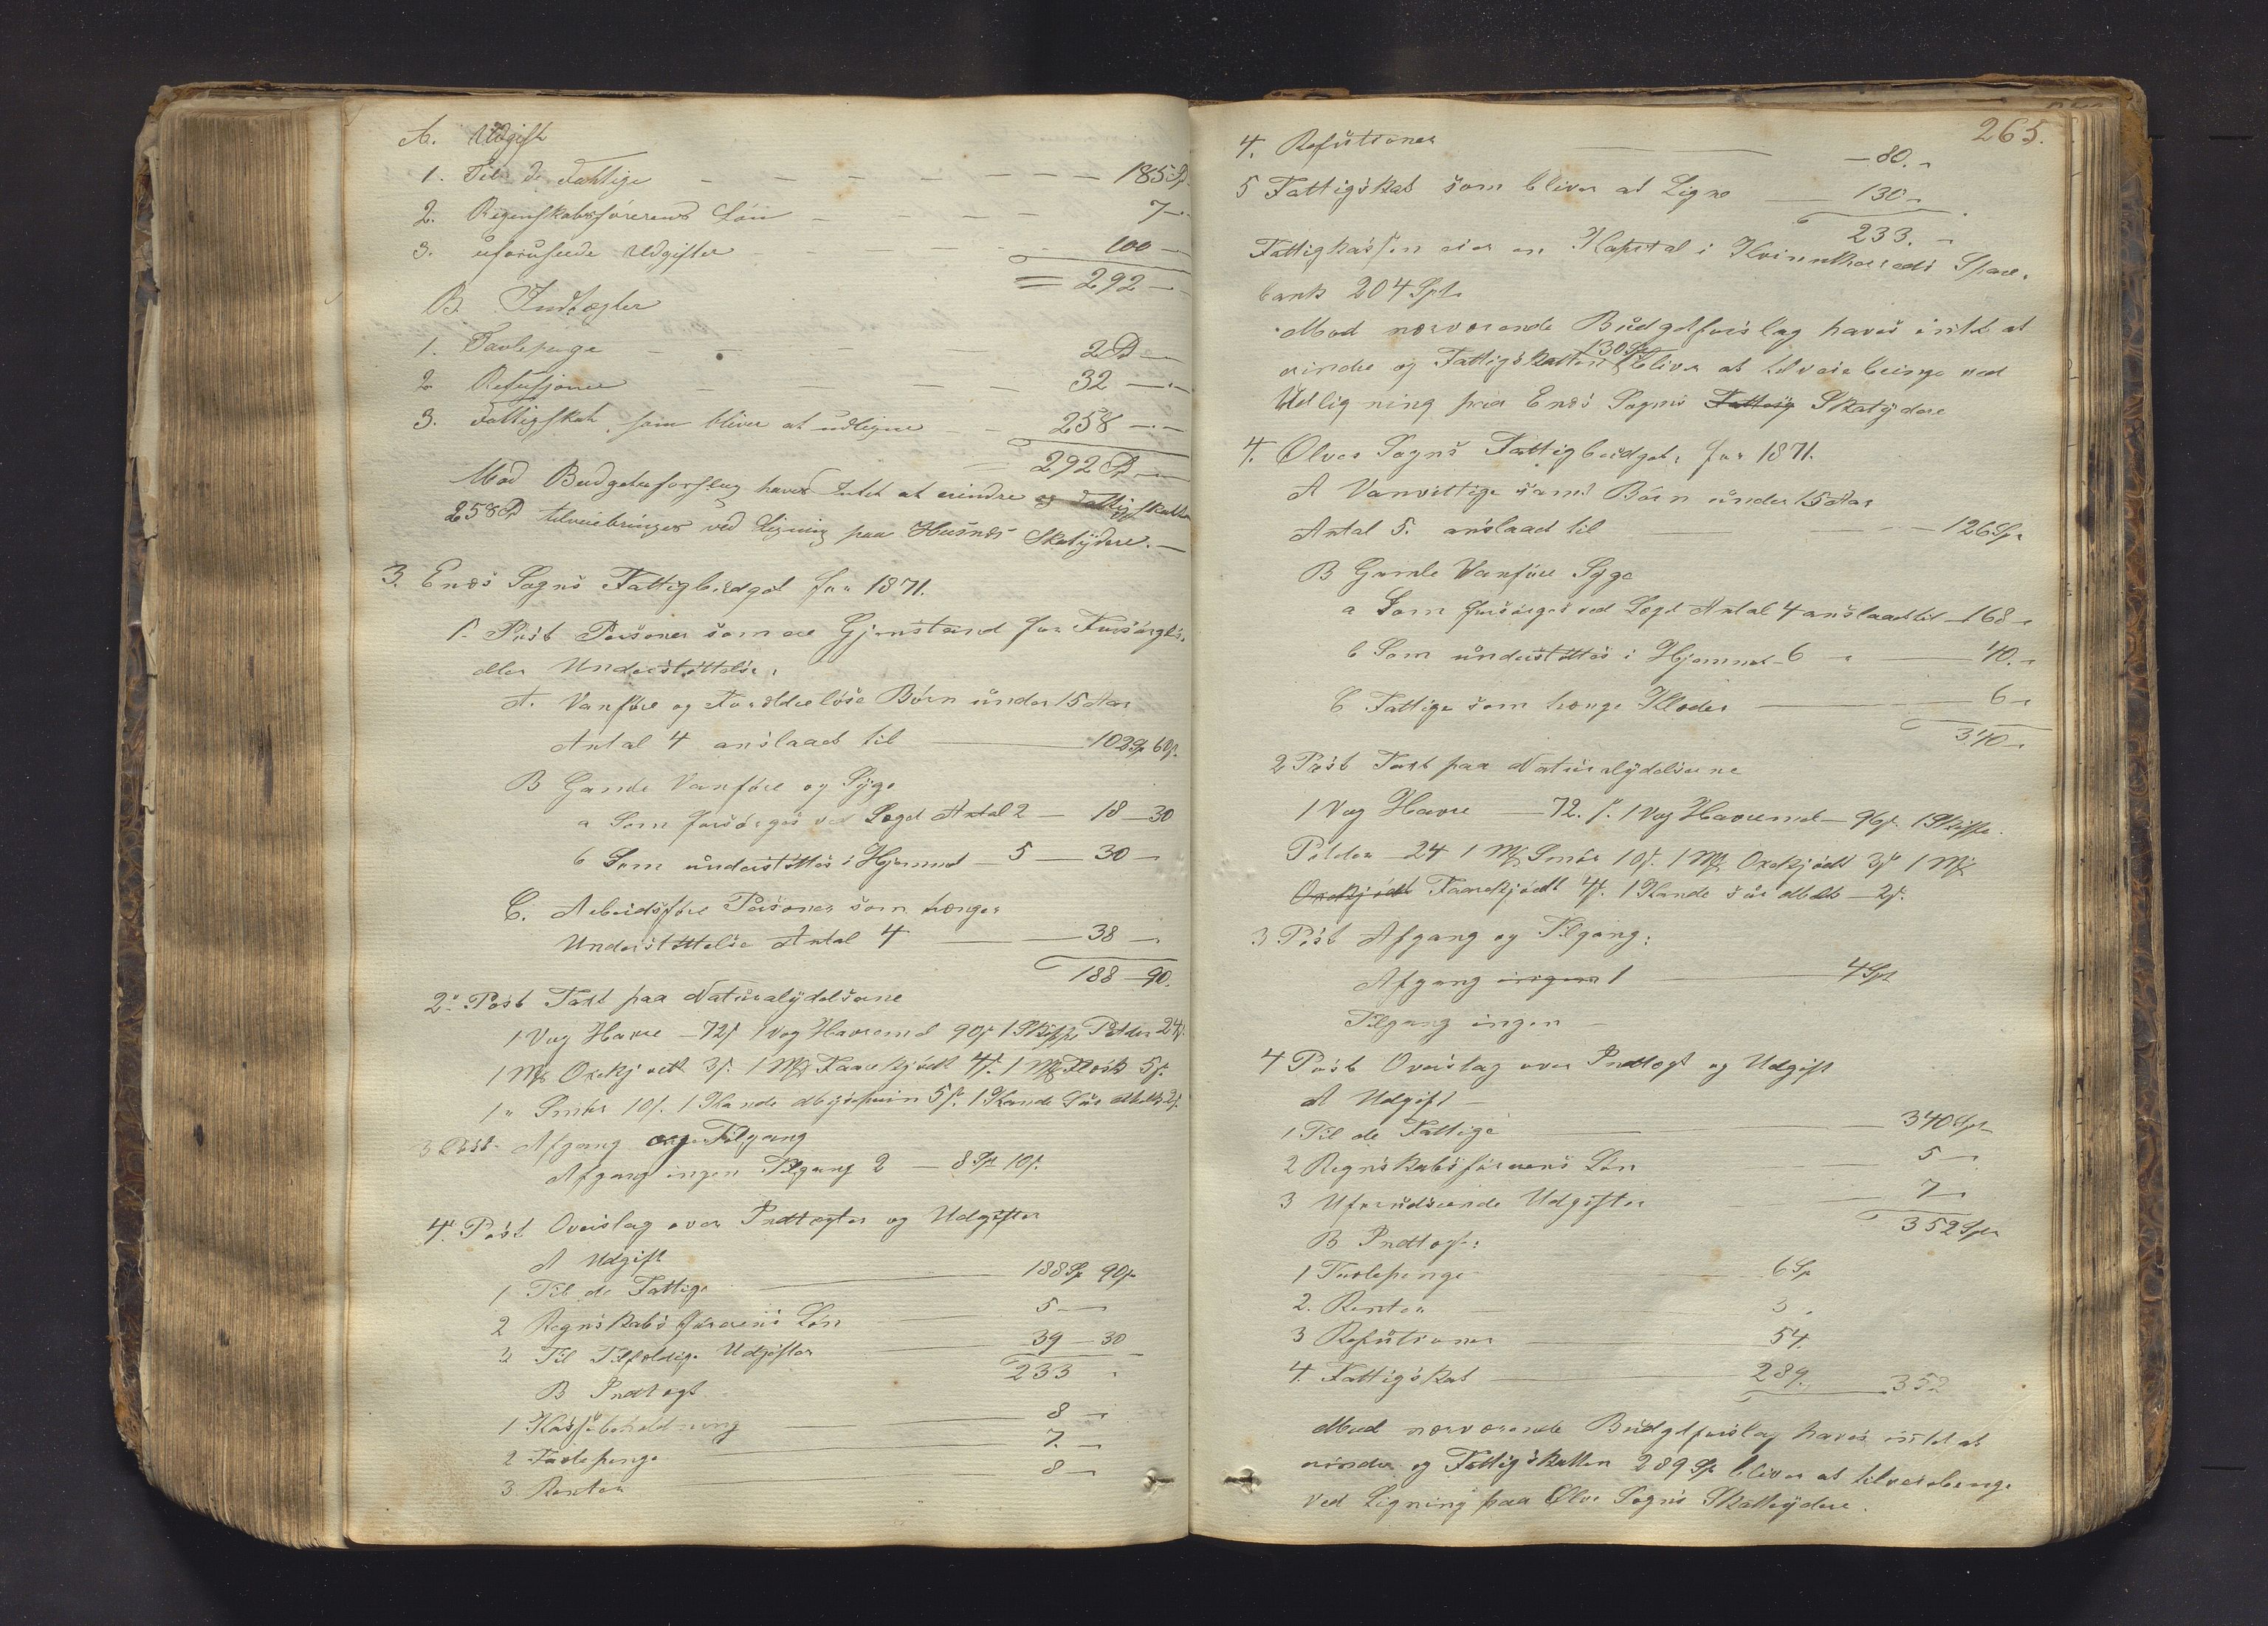 A. Udgift
1. Til de Fattige — — — — — — 185 Spd
2. Regenskabsførerens Løn — — — — 7 —
3. uforuseede Udgifter — — — — 100 —
= 292 —
B. Indtægter
1. Tavlepenge — — — — 2 Spd —
2. Refusjoner — — — — 32 —
3. Fattigskat, som bliver at udligne — — 258 —
292 Spd —
Mod Budgetsforslag haves Intet at erindre og Fattigskatten
258 Spd tilveiebringes ved Ligning paa Husnæs Skatydere. —
3. Enæs Sogns Fattigbudget for 1871.
1. Post Personer som ere Gjenstand for Forsørgels.
eller Understøttelse.
A. Vanføre og Forældreløse Børn under 15 Aar
Antal 4 anslaaet til — 102 Sp 60 s.
B Gamle Vanføre og Syge
a Som forsørges ved Lægd Antal 2 — 18 — 30
b Som understøttes i Hjemmet — 5 — 30 —
C. Arbeidsføre Personer som trænger
Understøttelse Antal 4 — 38 —
188 — 90.
2. Post Taxt paa Naturalydelserne
1 Vog Havre — 72 s. 1 Vog Havremel 90 s. 1 Skjeppe Poteter 24 s.
1 Mk Oxekjødt 3 s. 1 Mk Faarekjødt 4 s. 1 Mk Flesk 5 s.
1 " Smør 10 s. 1 Kande 5 s. 1 Kande Sur Melk 2 s.
3 Post. Afgang og Tilgang
Afgang ingen Tilgang 2 — 8 Spd 10 s.
4. Post Overslag over Indtægter og Udgifter
A Udgift
1 Til de Fattige — 188 Sp 90 s.
2 Regnskabsførerens Løn — 5 —
3 Til Tilfeldige Udgifter — 39 — 30
233
B Indtægt
1 Kassebeholdning — 8 —
2 Tavlepenge — 7. —
3 Renter — 8 —
265.
4. Refutioner — 80. "
5 Fattigskat som bliver at Ligne — 130 "
233. "
Fattigkassen eier en Kapital i Kvinnherreds Spare-
bank 204 Spd.
Mod nærværende Budgetforslag haves intet at
130 Sp
erindre og Fattigskatten bliver at tilveiebringe ved
Udligning paa Enæs Sogns Fattig Skatydere
4. Ølves Sogns Fattigbudget for 1871.
A Vanvittige samt Børn under 15 Aar
Antal 5. anslaaet til — 126 Sp.
B Gamle Vanføre Syge
a Som forsørges ved Lægd Antal 4 anslaaet til — 168 "
b Som understøttes i Hjemmet — 6 " — 40. "
C Fattige som trænge Klæder — 6 "
340 "
2 Post Taxt paa Naturalydelserne
1 Vog Havre — 72. s. 1 Vog Havremel — 96 s. 1 Skjeppe
Poteter — 24 1 Mk Smør 10 s. 1 Mk Oxekjødt 3 s. 1 Mk
Oxekjødt Faarekjødt 4 s. 1 Kande sur Melk — 2 s.
3 Post Afgang og Tilgang:
Afgang ingen 1 — 4 Spd
Tilgang ingen —
4 Post Overslag over Indtægt og Udgift
A Udgift —
1 Til de Fattige — 340 Spd
2 Regnskabsførerens Løn — 5 —
3 Uforudseende Udgifter — 7 —
352 Spd
B Indtægt:
1 Tavlepenge — 6 Sp
2. Renter — 3 "
3 Refutioner — 54.
4. Fattigskat — 289. — 352
Mod nærværende Budgetforslag haves intet at
erindre og Fattigskatten 289 Sp bliver at tilveiebringe
ved Ligning paa Ølve Sogns Skatteydere.